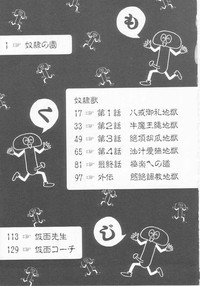 も
1 ☞ 奴隷の園
く
奴隷獣
17 ☞ 第1話 八戒御礼地獄
33 ☞ 第2話 牛魔王腸地獄
49 ☞ 第3話 絶頂胡瓜地獄
65 ☞ 第4話 油汁愛籠地獄
81 ☞ 最終話 極楽への道
97 ☞ 外伝
じ
113 ☞ 仮面先生
129 ☞ 仮面コーチ